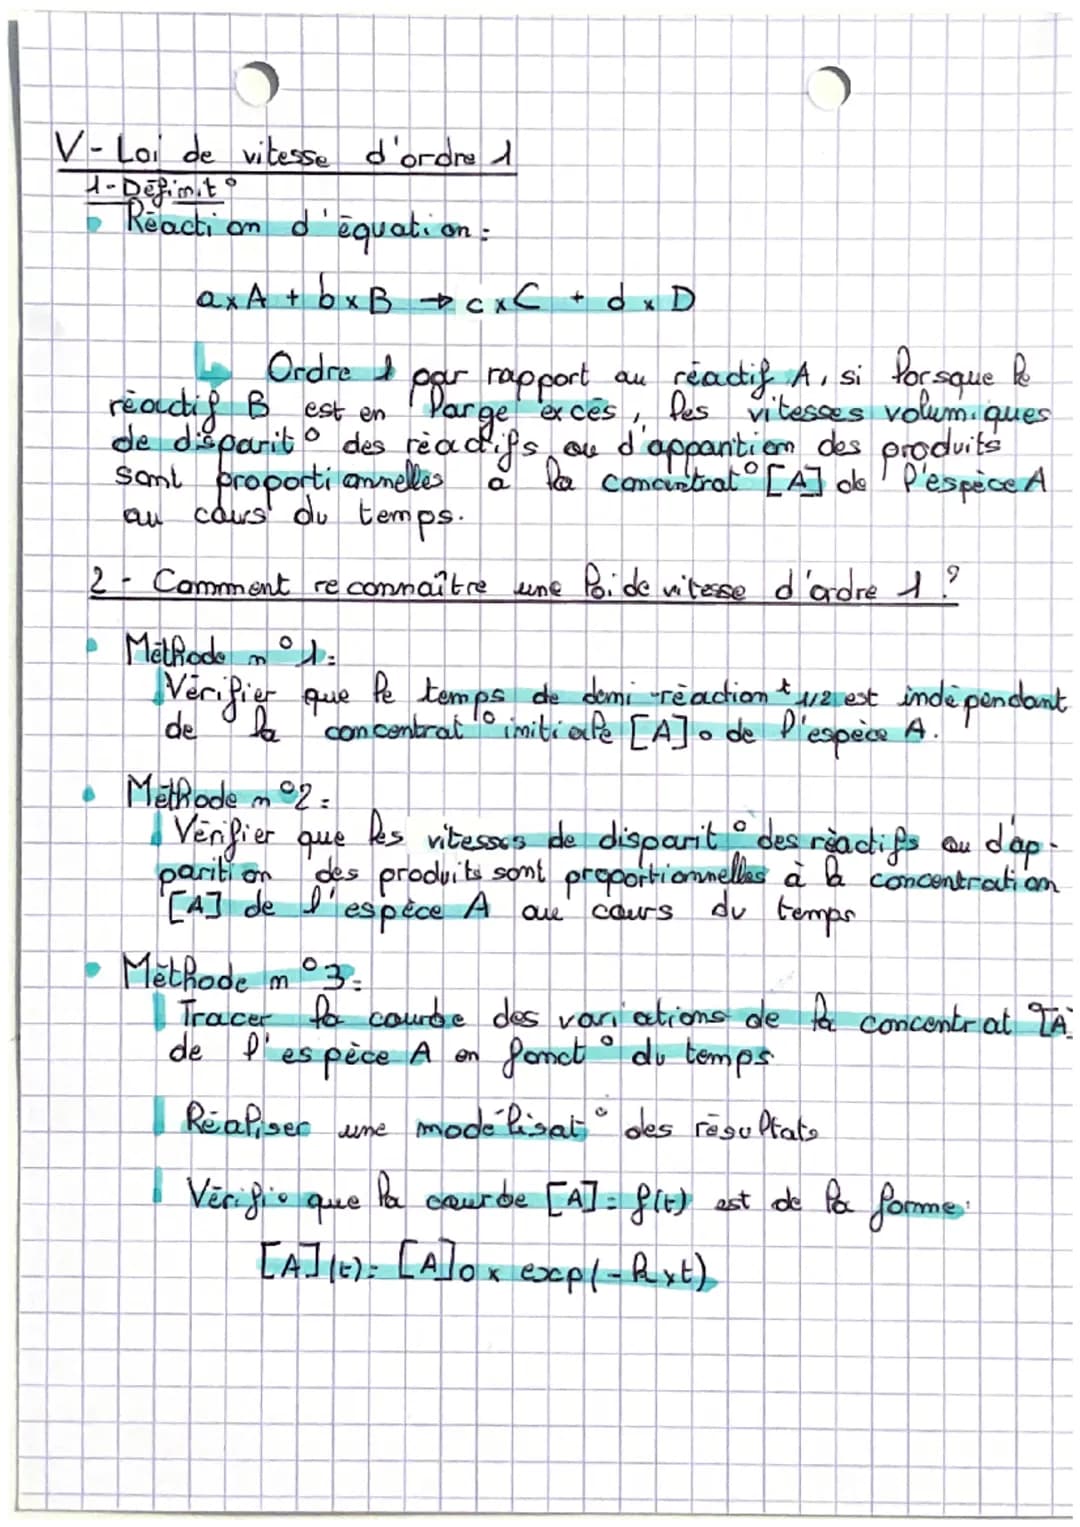 V - Loi de vitesse d'ordre 1
1 - Définit°
Réaction d'équation :
a x A + b x B → c x C + d x D
↳ Ordre 1 par rapport au réactif A, si lorsque le
réactif B est en large excès, les vitesses volumiques
de disparit° des réactifs ou d'apparition des produits
sont proportionnelles à la concentrat° [A] de l'espèce A
au cours du temps.
2 - Comment reconnaître une loi de vitesse d'ordre 1 ?
Méthode n°1 :
Vérifier que le temps de demi-réaction t 1/2 est indépendant
de la concentrat° initiale [A]o de l'espèce A.
Méthode n°2 :
Vérifier que les vitesses de disparit° des réactifs ou d'ap-
parition des produits sont proportionnelles à la concentration
[A] de l'espèce A au cours du temps
Méthode n°3 :
Tracer la courbe des variations de la concentrat° [A]
de l'espèce A en fonct° du temps
Réaliser une modélisat° des résultats
Vérifie que la courbe [A] = f(t) est de la forme :
[A](t) = [A]o x exp(-k x t)